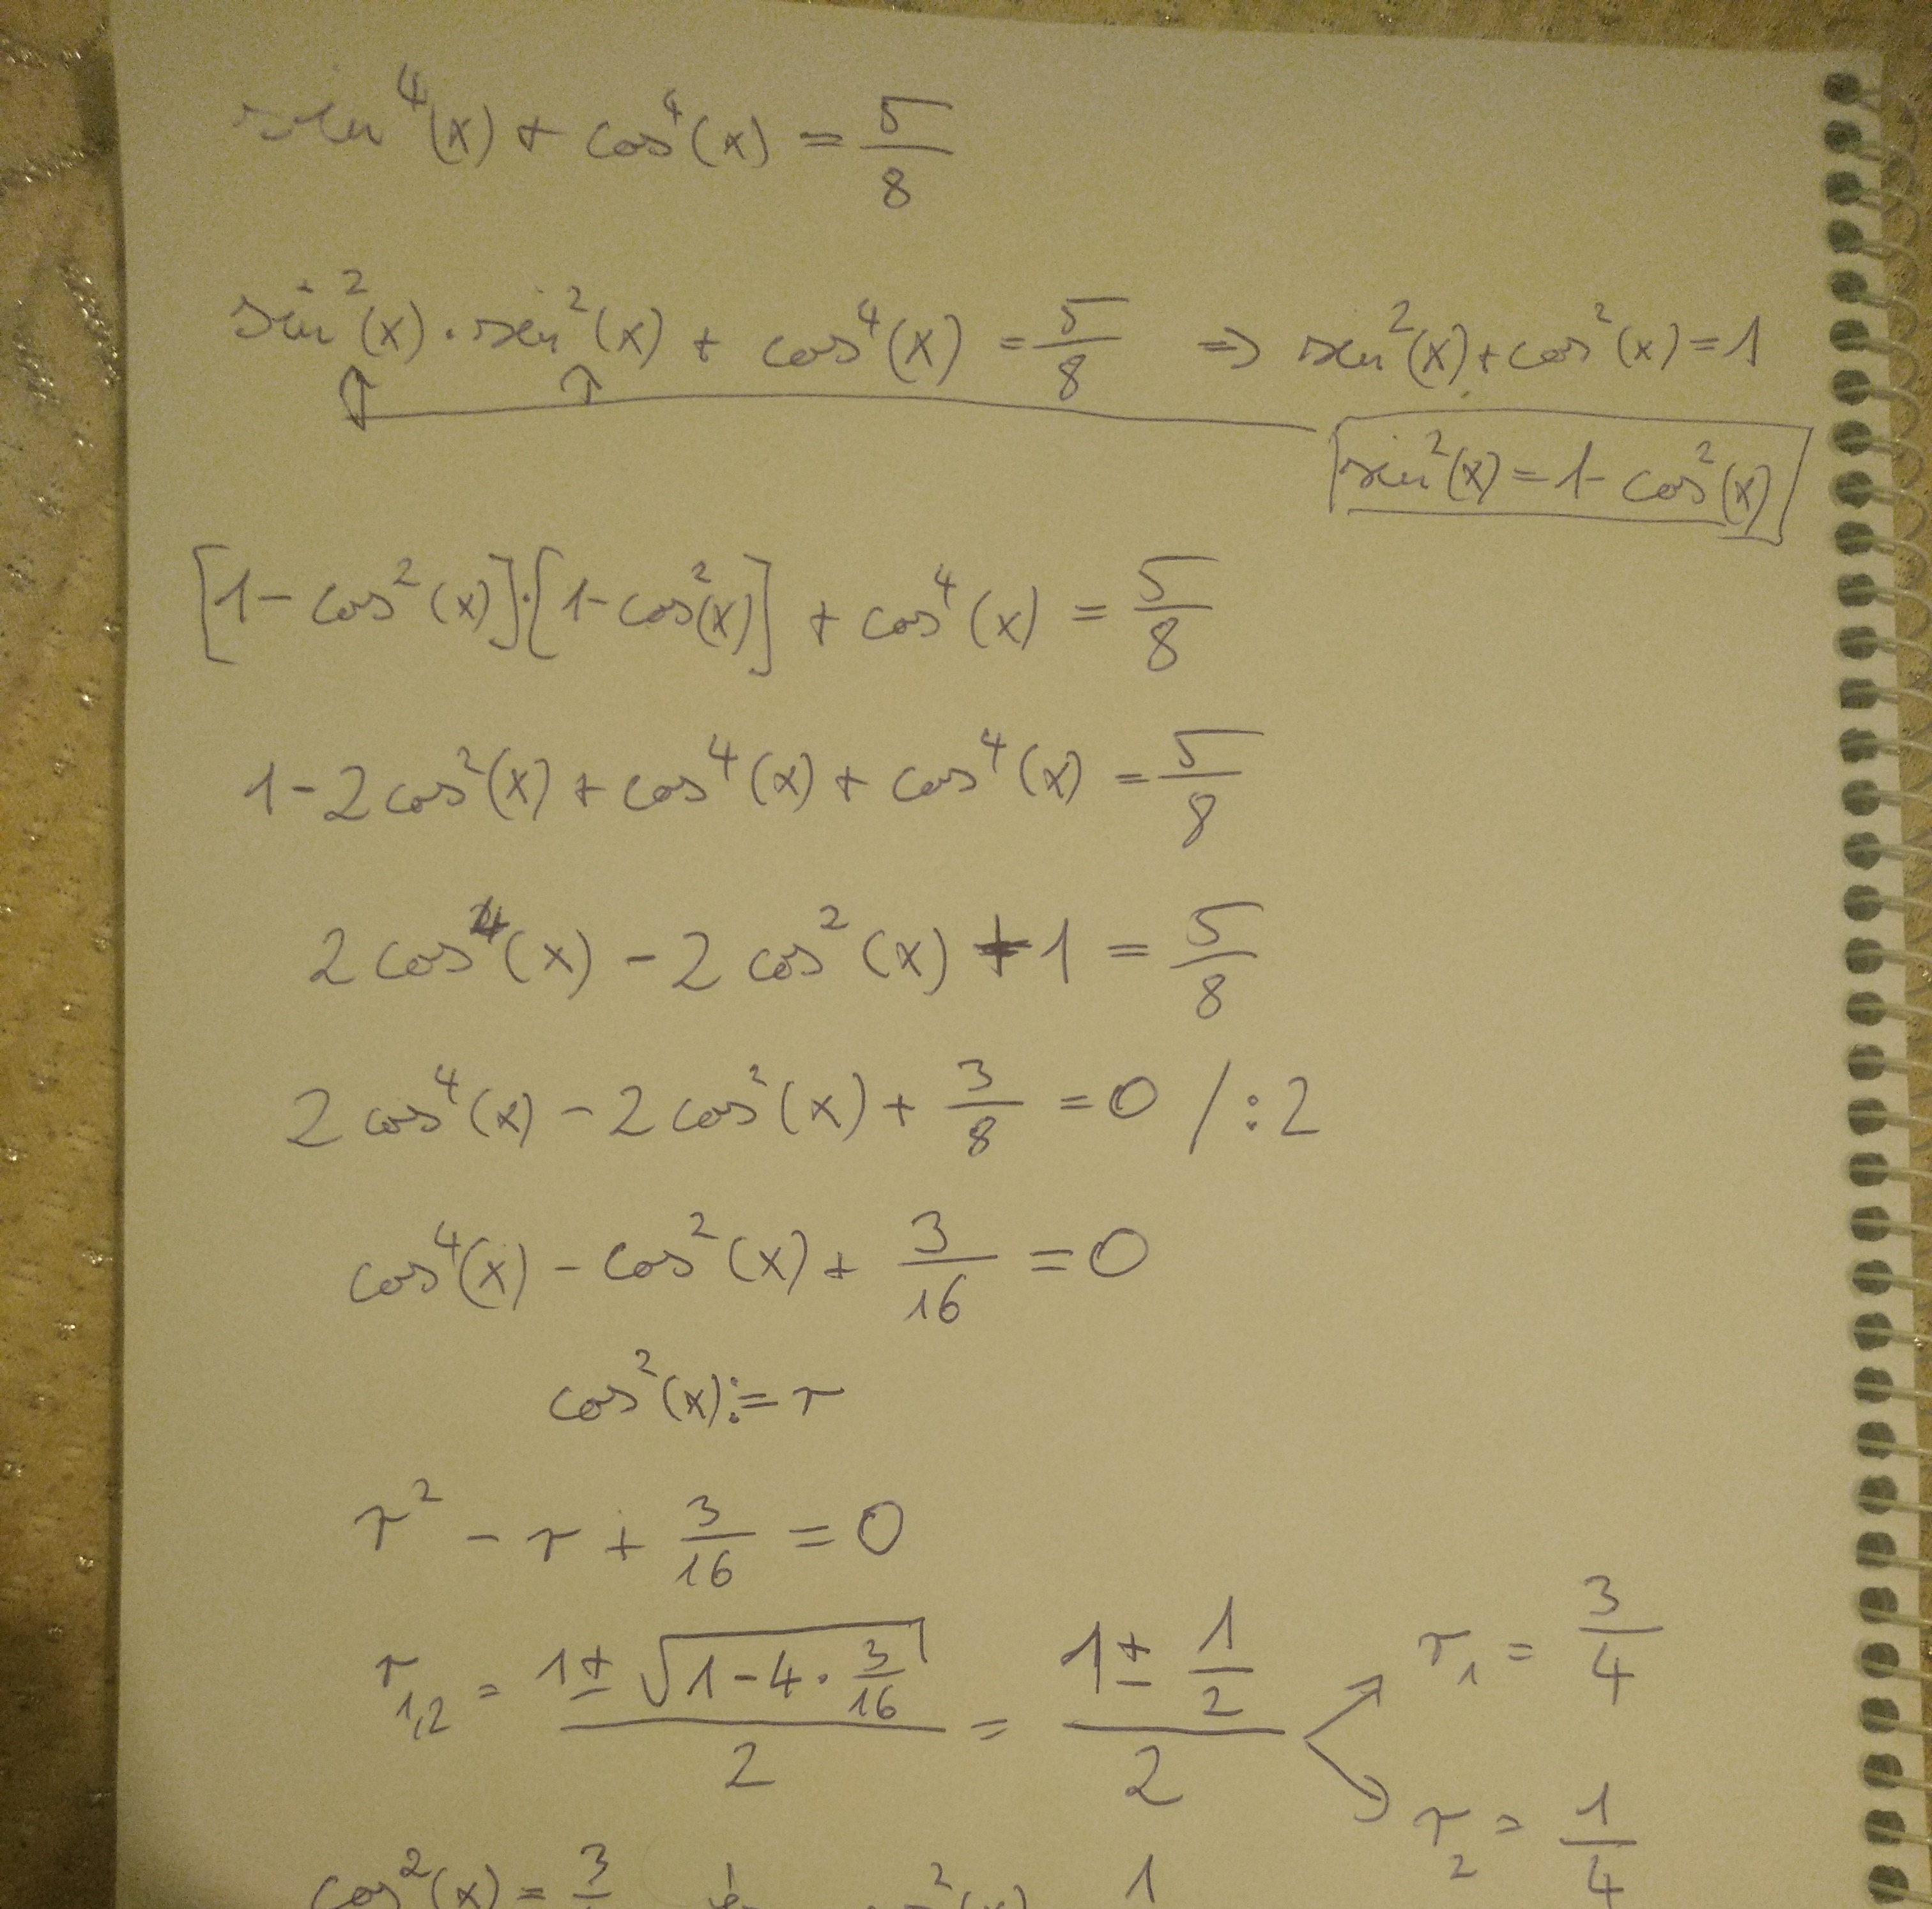 sin⁴(x) + cos⁴(x) = 5/8
sin²(x) · sin²(x) + cos⁴(x) = 5/8 ⇒ sin²(x) + cos²(x) = 1
sin²(x) = 1 - cos²(x)
[1 - cos²(x)] · [1 - cos²(x)] + cos⁴(x) = 5/8
1 - 2cos²(x) + cos⁴(x) + cos⁴(x) = 5/8
2cos⁴(x) - 2cos²(x) + 1 = 5/8
2cos⁴(x) - 2cos²(x) + 3/8 = 0 / :2
cos⁴(x) - cos²(x) + 3/16 = 0
cos²(x) := r
r² - r + 3/16 = 0
r₁,₂ = (1 ± √(1 - 4 · 3/16))/2 = (1 ± 1/2)/2 r₁ = 3/4
r₂ = 1/4
cos²(x) = 3 ²(x) 1